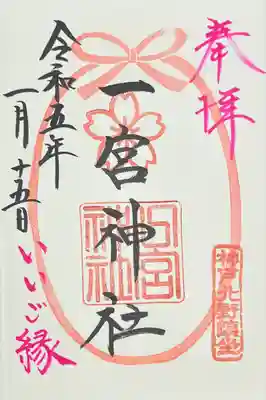 奉拝
一宮神社
令和五年
一月十五日
いいご縁
一宮神社
神戸北野鎮座